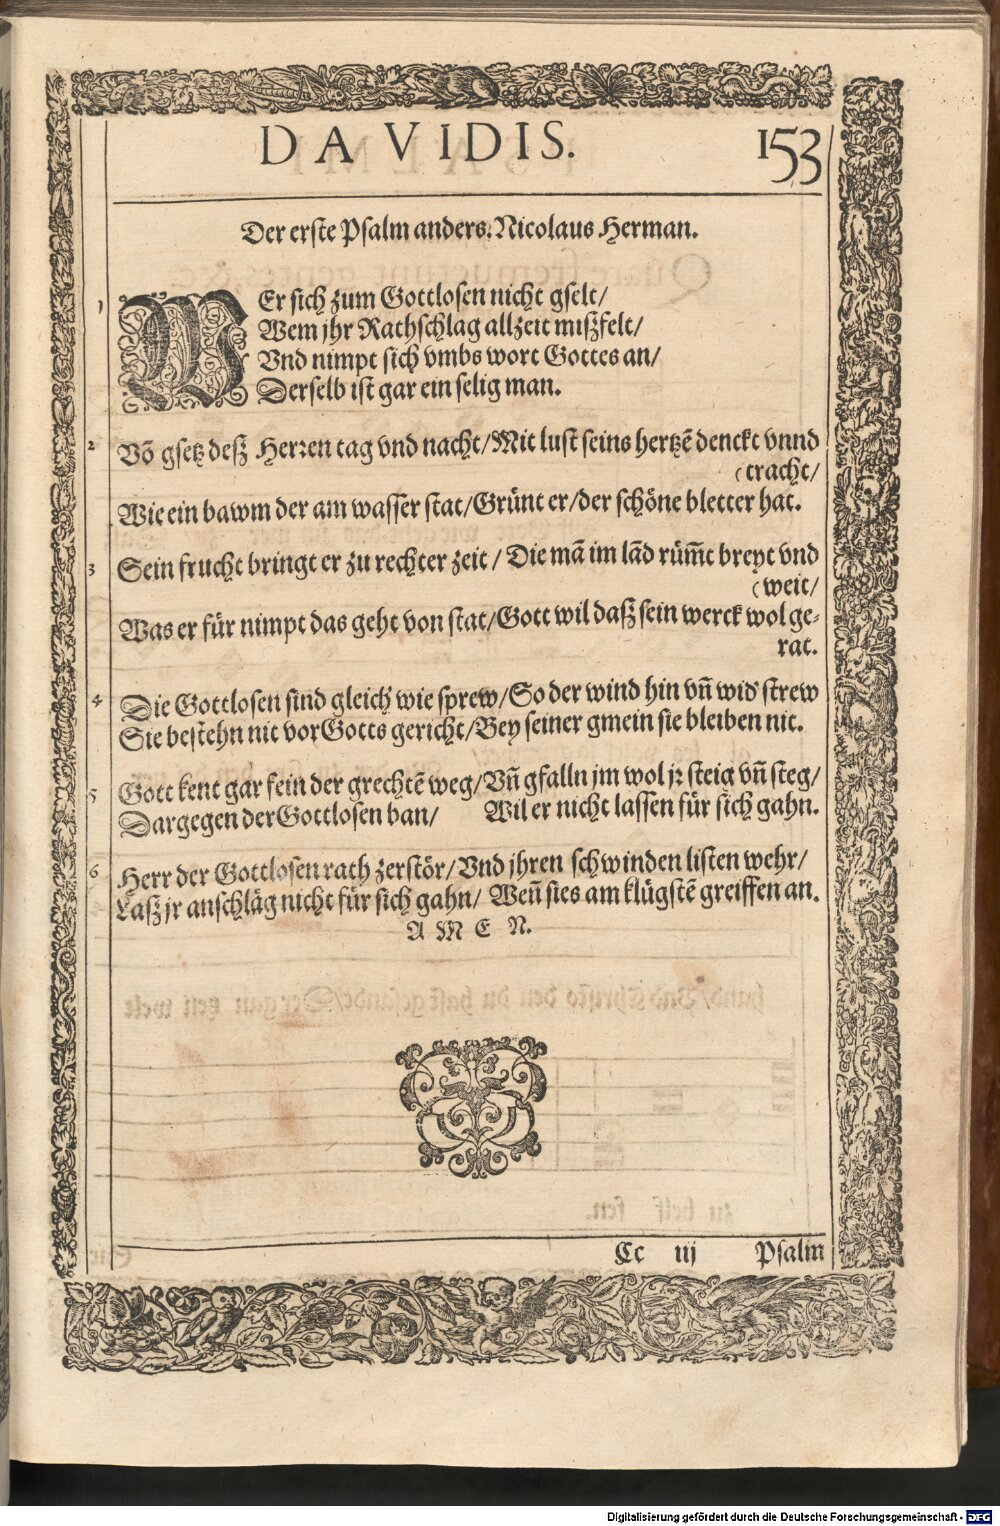 DAVIDIS. 153
Der erste Psalm anders. Nicolaus Herman.
1 WEr sich zum Gottlosen nicht gselt/
Wem jhr Rathschlag allzeit miszfelt/
Vnd nimpt sich vmbs wort Gottes an/
Derselb ist gar ein selig man.
2 Võ gsetz desz Herren tag vnd nacht/Mit lust seins hertzẽ denckt vnnd
(tracht/
Wie ein bawm der am wasser stat/Grünt er/der schöne bletter hat.
3 Sein frucht bringt er zu rechter zeit/ Die mã im lãd rüm̃t breyt vnd
(weit/
Was er für nimpt das geht von stat/Gott wil dasz sein werck wol ge-
rat.
4 Die Gottlosen sind gleich wie sprew/So der wind hin vñ wid' strew
Sie bestehn nit vor Gotts gericht/Bey seiner gmein sie bleiben nit.
5 Gott kent gar fein der grechtẽ weg/Vñ gfalln jm wol jr steig vñ steg/
Dargegen der Gottlosen ban/ Wil er nicht lassen für sich gahn.
6 Herr der Gottlosen rath zerstör/Vnd jhren schwinden listen wehr/
Lasz jr anschläg nicht für sich gahn/ Weñ sies am klügstẽ greiffen an.
A M E N.
Cc iij Psalm
Digitalisierung gefördert durch die Deutsche Forschungsgemeinschaft - DFG